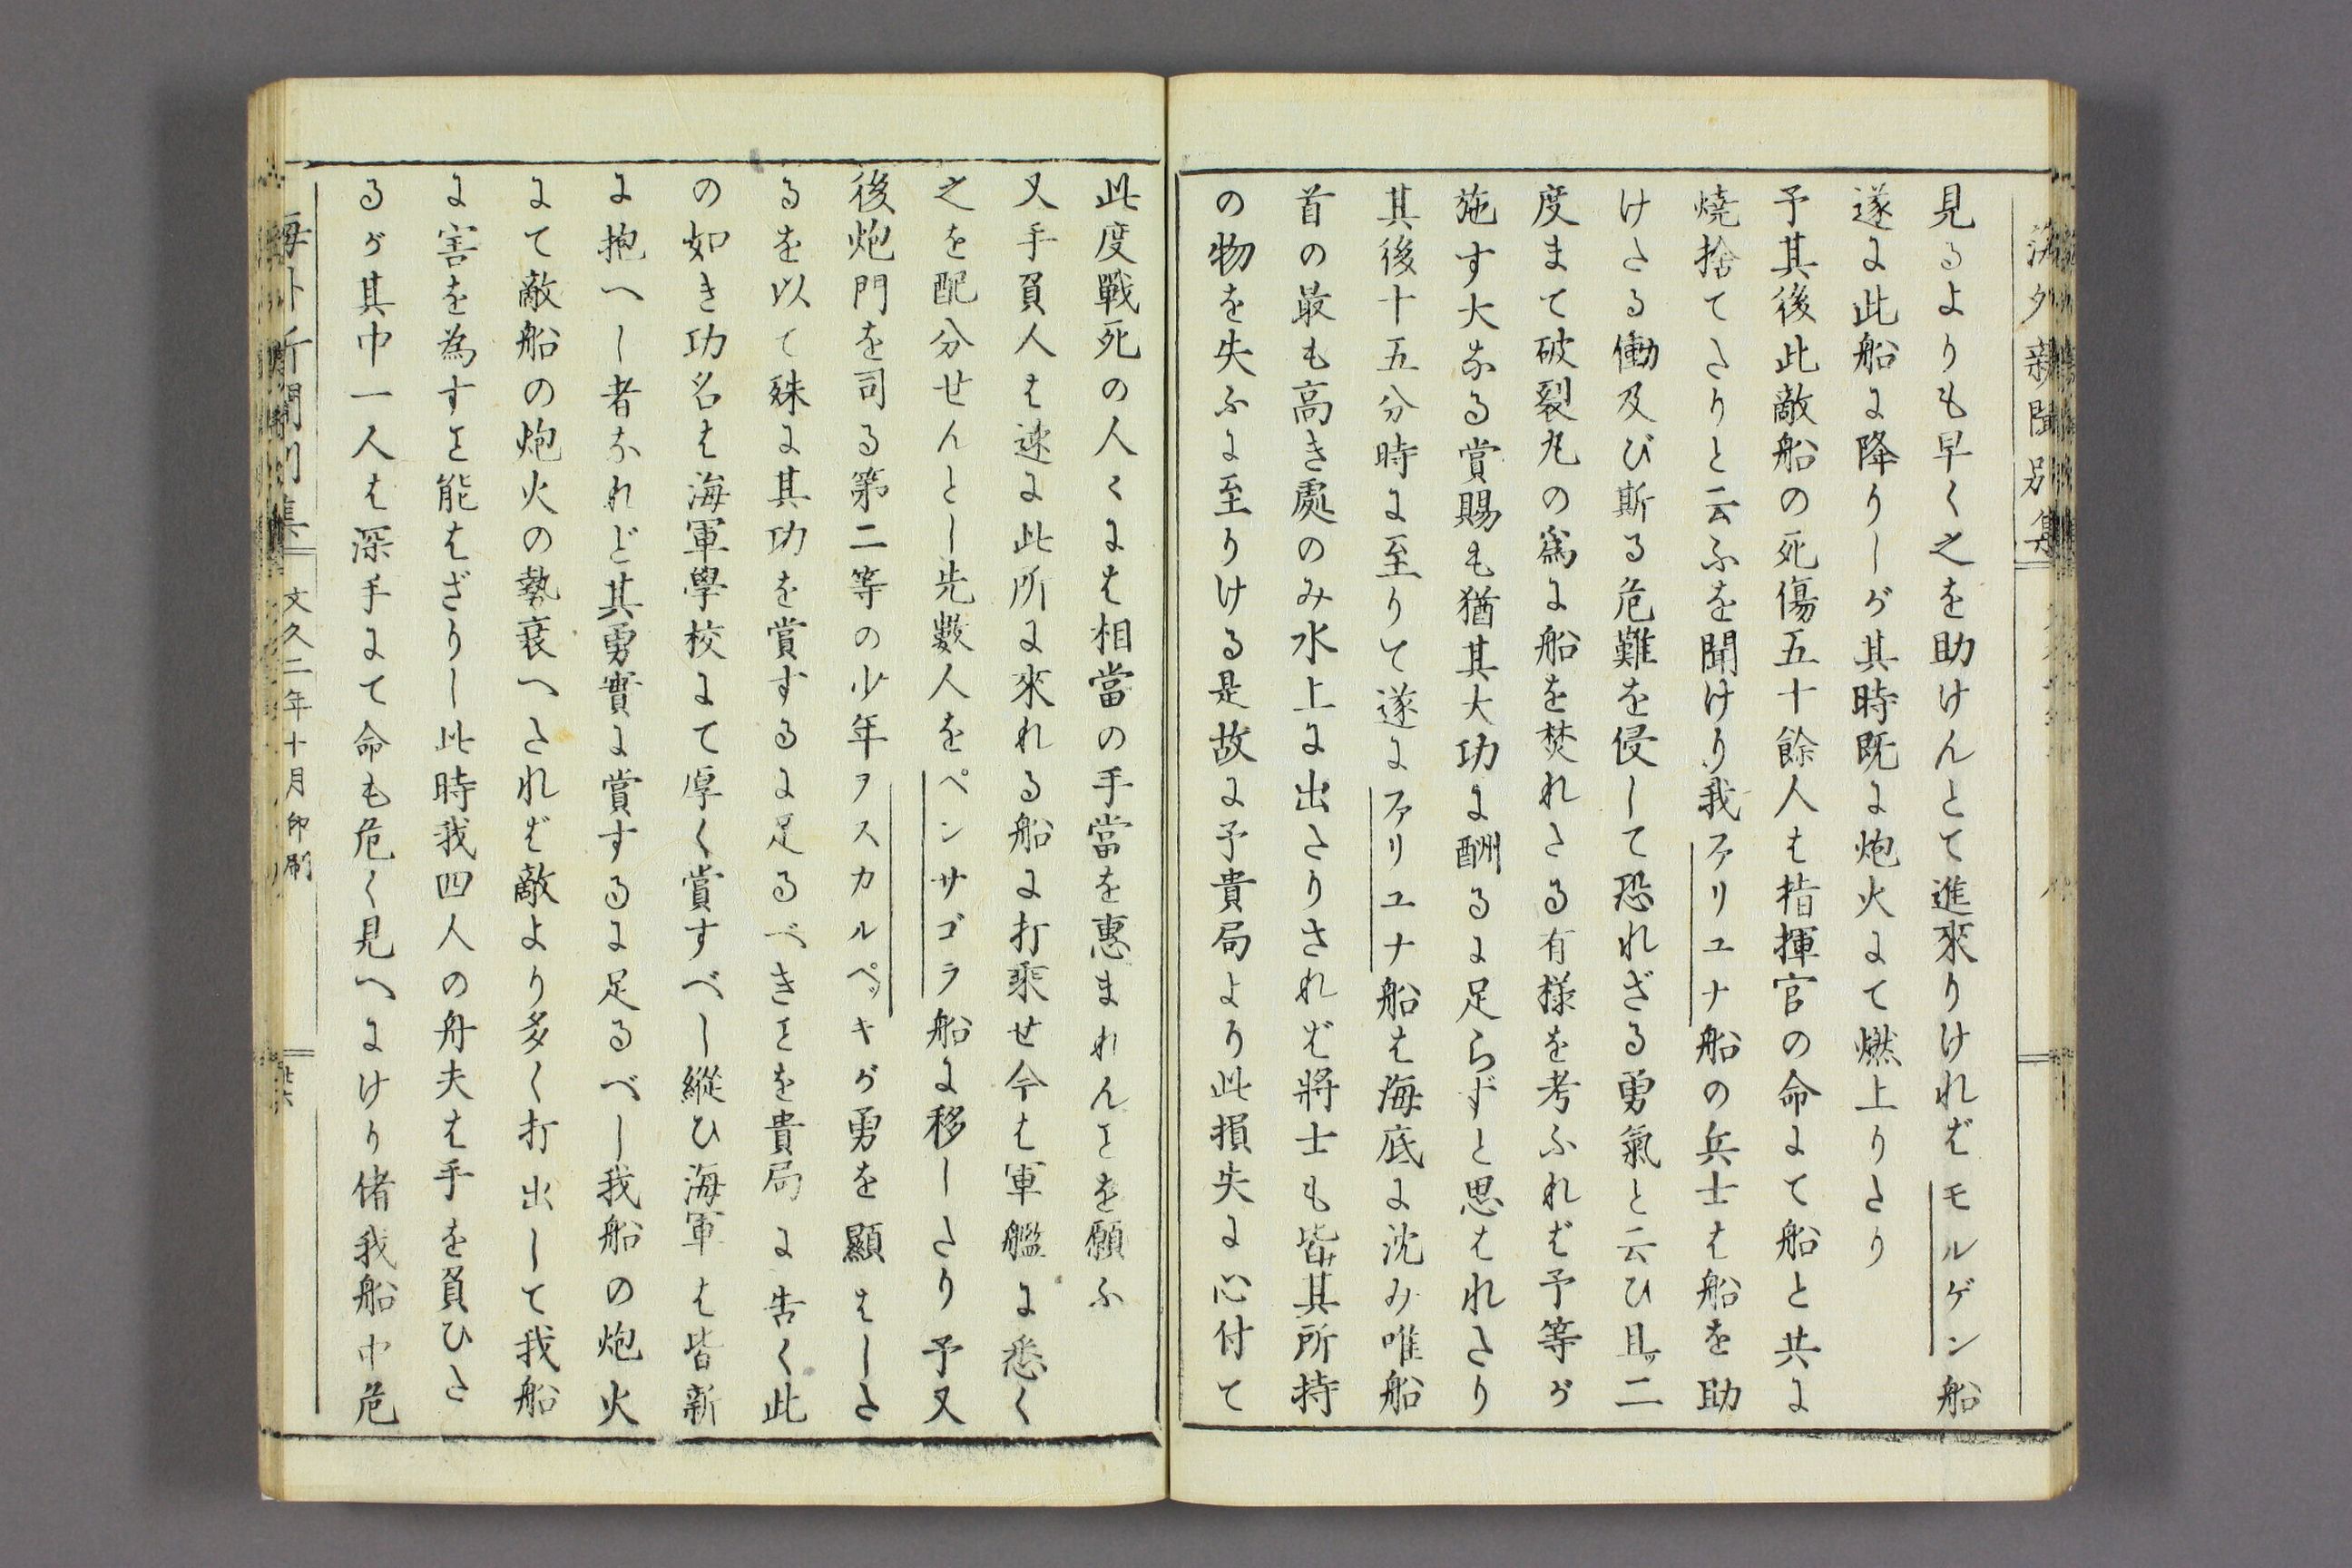 海外新聞別集
見るよりも早く之を助けんとて進來りけれどモルゲン船
遂に此船に降りしが其時既に炮火にて燃上りたり
予其後此敵船の死傷五十餘人は指揮官の命にて船と共に
燒捨てたりと云ふを聞けり我ファリユナ船の兵士は船を助
けたる働及び斯る危難を侵して恐れざる勇氣と云ひ且ッ二
度まて破裂丸の爲に船を焚れたる有様を考ふれば予等が
施す大なる賞賜も猶其大功に酬るに足らずと思はれたり
其後十五分時に至りて遂にファリユナ船は海底に沈み唯船
首の最も高き處のみ水上に出たりされば將士も皆其所持
の物を失ふに至りける是故に予貴局より此損失に心付て
此度戰死の人々には相當の手當を惠まれんヿを願ふ
又手負人は速に此所に來れる船に打乘せ今は軍艦に悉く
之を配分せんとし先數人をペンサゴラ船に移したり予又
後炮門を司る第二等の少年ヲスカルペッキが勇を顯はした
るを以て殊に其功を賞するに足るべきヿを貴局に告く此
の如き功名は海軍學校にて厚く賞すべし縱ひ海軍は皆新
に抱へし者なれど其勇實に賞するに足るべし我船の炮火
にて敵船の炮火の勢衰へたれば敵より多く打出して我船
に害を為すヿ能はざりし此時我四人の舟夫は手を負ひた
るが其中一人は深手にて命も危く見へにけり偖我船中危
海外新聞別集 文久二年十月印刷 廿六